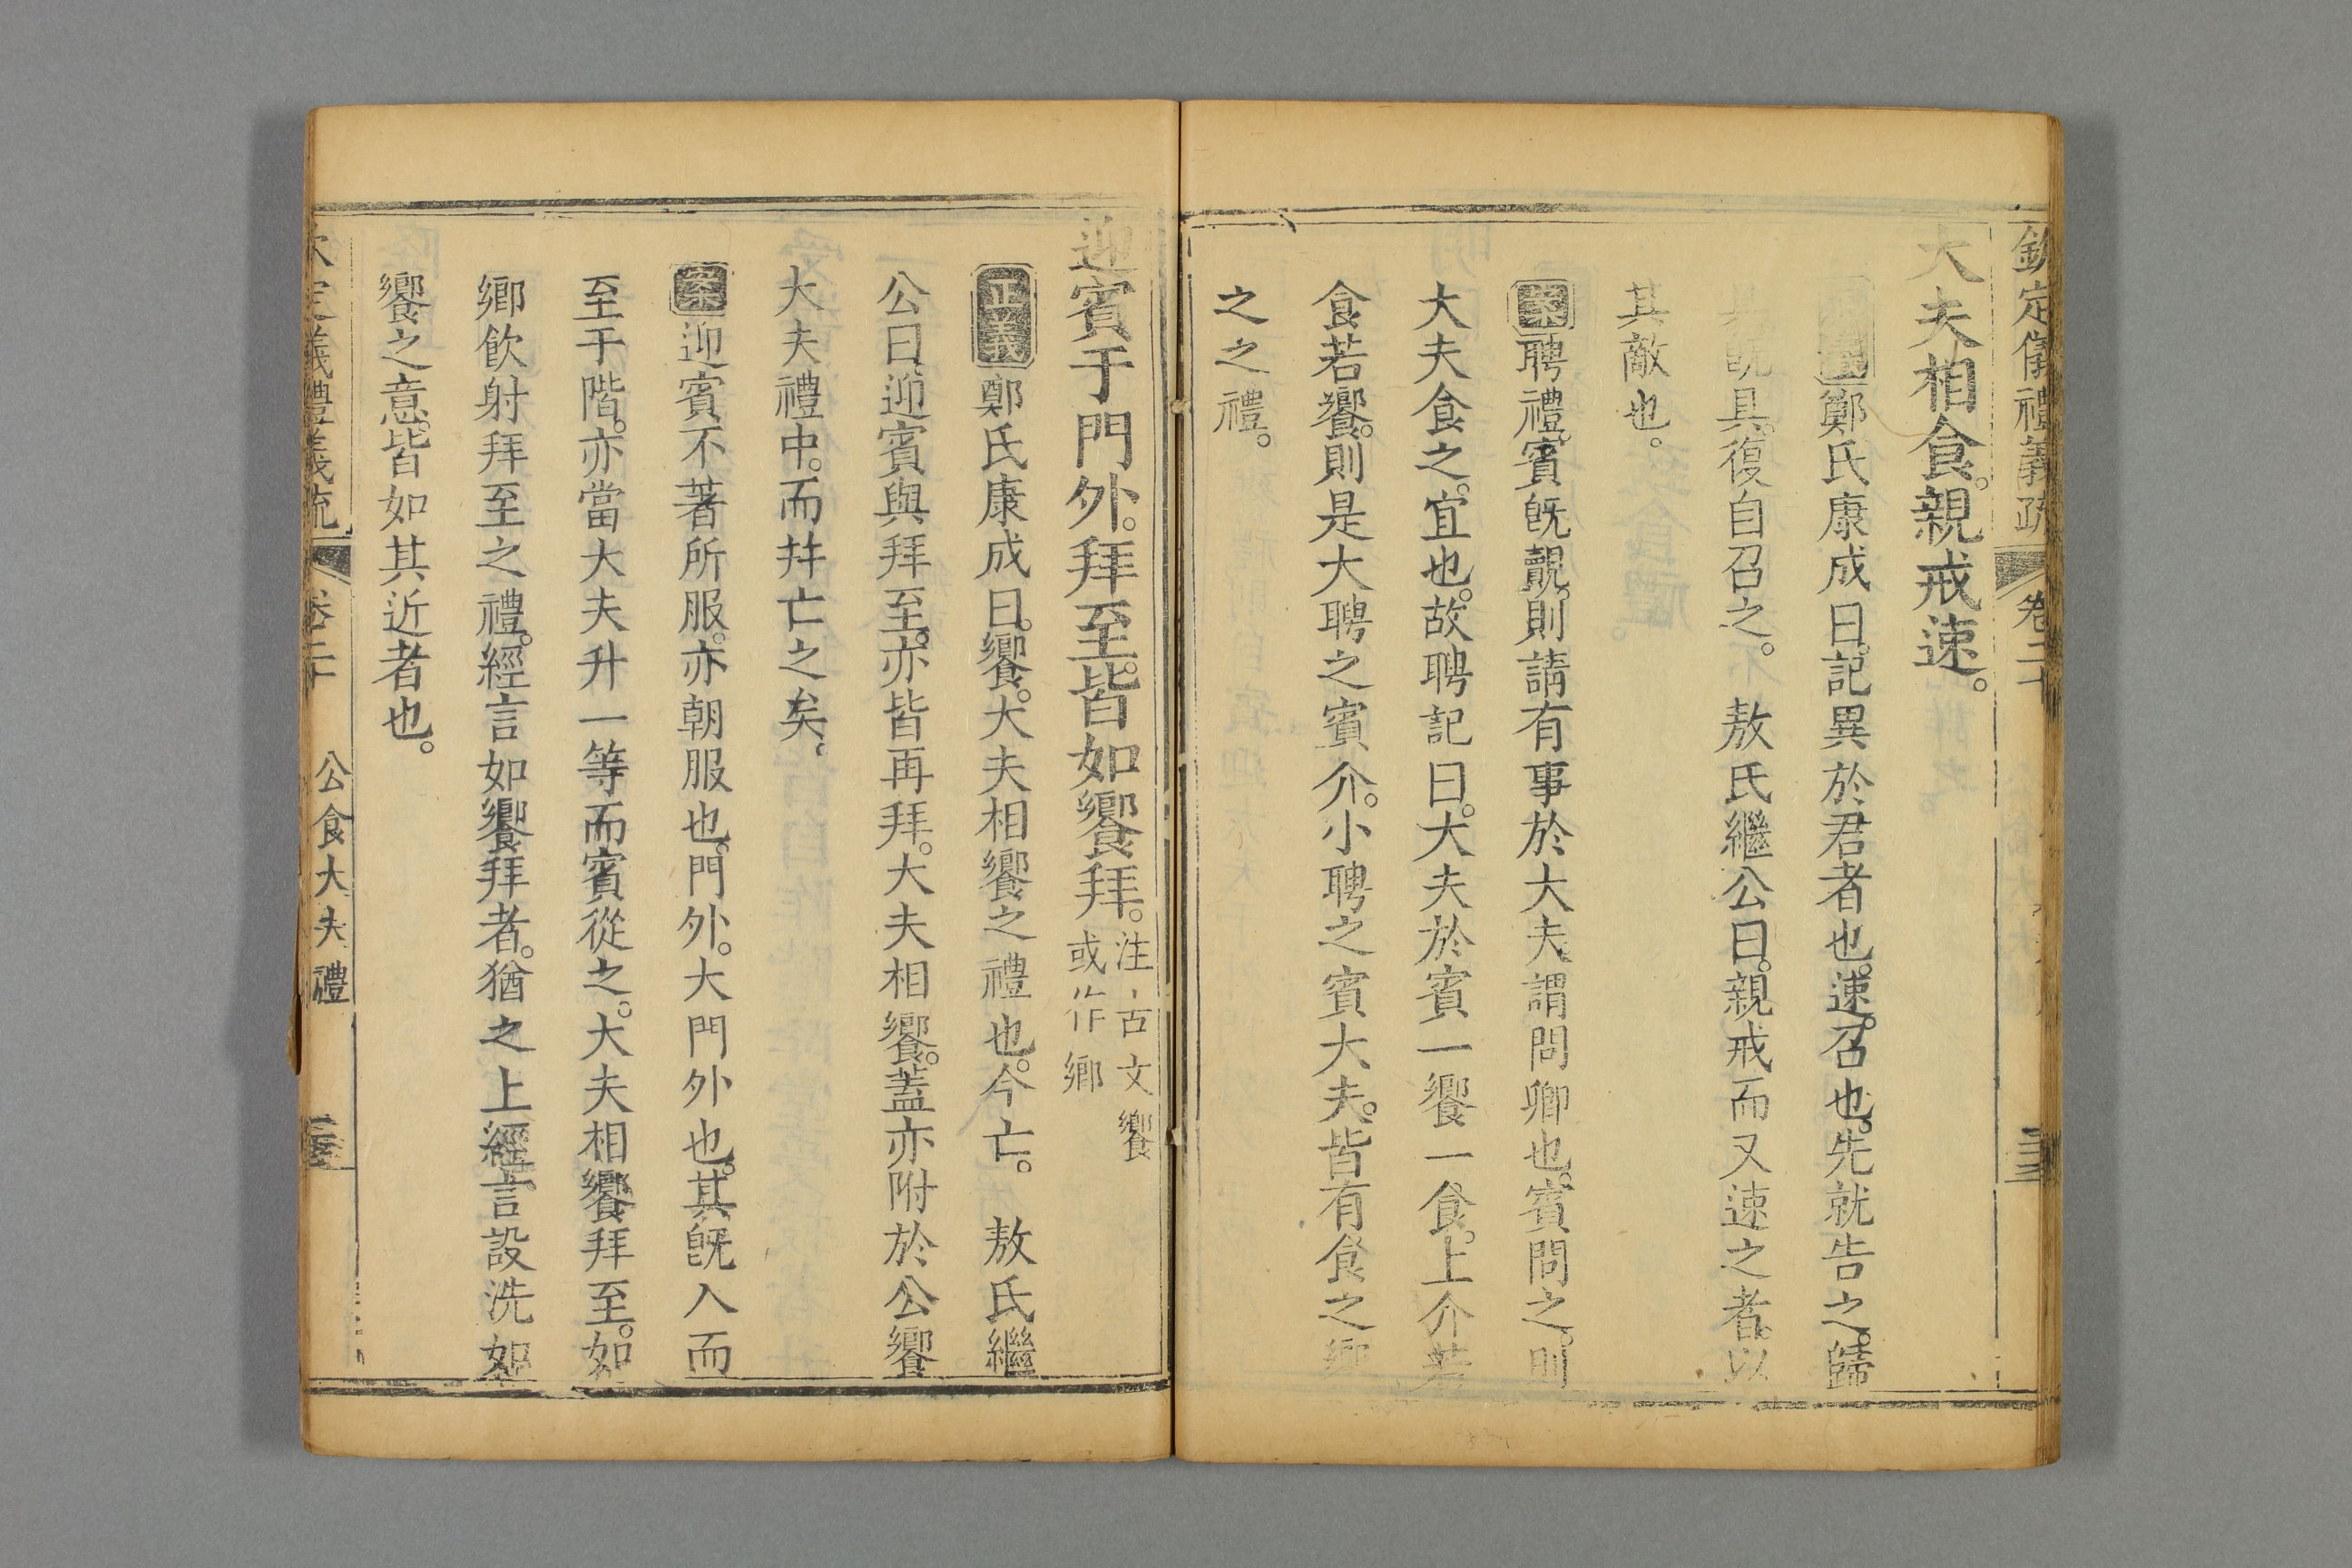 欽定儀禮義疏 卷二十
大夫相食。親戒速。
鄭氏康成曰。記異於君者也。速。召也。先就告之。歸
既具。復自召之。 敖氏繼公曰。親戒而又速之者。以
其敵也。
案聘禮。賓既覿。則請有事於大夫。謂問卿也。賓問之。則
大夫食之。宜也。故聘記曰。大夫於賓一饗一食。上介若
食若饗。則是大聘之賓介。小聘之賓大夫。皆有食之饗
之之禮。
迎賓于門外。拜至。皆如饗拜。注古文饗或作鄉
正義鄭氏康成曰。饗。大夫相饗之禮也。今亡。 敖氏繼
公曰。迎賓與拜至。亦皆再拜。大夫相饗。蓋亦附於公饗
大夫禮中。而幷亡之矣。
案迎賓不著所服。亦朝服也。門外。大門外也。其既入而
至于階。亦當大夫升一等而賓從之。大夫相饗拜至。如
鄉飲射拜至之禮。經言如饗拜者。猶之上經言設洗如
饗之意。皆如其近者也。
欽定儀禮義疏 卷二十 公食大夫禮